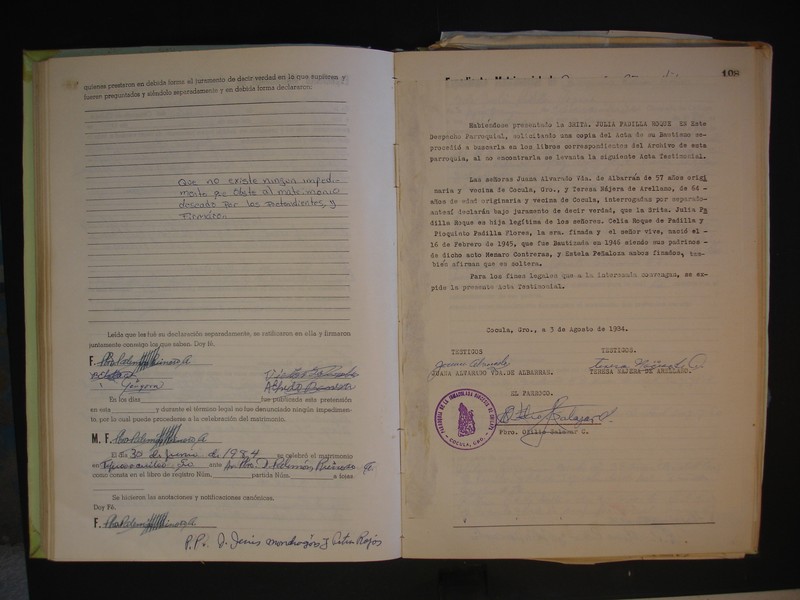 quienes prestaron en debida forma el juramento de decir verdad en lo que supieren y
fueren preguntados y siéndolo separadamente y en debida forma declararon:
Que no existe ningun impedi-
mento que obste al matrimonio
deseado por los pretendientes, y
firmaron
Leída que les fué su declaración separadamente, se ratificaron en ella y firmaron
juntamente conmigo los que saben. Doy fé.
F.
En los días fue publicada esta pretensión
en esta y durante el término legal no fue denunciado ningún impedimen-
to, por lo cual puede procederse a la celebración del matrimonio.
M. F.
El día 30 de Junio de 1984 se celebró el matrimonio
en ante
como consta en el libro de registro Núm. partida Núm. a fojas
Se hicieron las anotaciones y notificaciones canónicas.
Doy Fé.
F.
P.P. J. Jesús Mondragón y Petra Rojas
108
Habiéndose presentado la SRITA. JULIA PADILLA ROQUE EN Este
Despacho Parroquial, solicitando una copia del Acta de su Bautismo se-
procedió a buscarla en los libros correspondientes del Archivo de esta
parroquia, al no encontrarla se levanta la siguiente Acta Testimonial.
Las señoras Juana Alvarado Vda. de Albarrán de 57 años origi
naria y vecina de Cocula, Gro., y Teresa Nájera de Arellano, de 64 -
años de edad originaria y vecina de Cocula, interrogadas por separado-
antesí declarán bajo juramento de decir verdad, que la Srita. Julia Pa
dilla Roque es hija legítima de los señores. Celia Roque de Padilla y
Pioquinto Padilla Flores, la sra. finada y el señor vive, nació el -
16 de Febrero de 1945, que fue Bautizada en 1946 siendo sus padrinos -
de dicho acto Menaro Contreras, y Estela Peñaloza ambos finados, tam-
bién afirman que es soltera.
Para los fines legales que a la interesada convengan, se ex-
pide la presente Acta Testimonial.
Cocula, Gro., a 3 de Agosto de 1984.
TESTIGOS TESTIGOS.
JUANA ALVARADO VDA. DE ALBARRAN. TERESA NAJERA DE ARELLANO.
EL PARROCO.
Pbro. Otilio Salazar G.
COCULA, GRO.